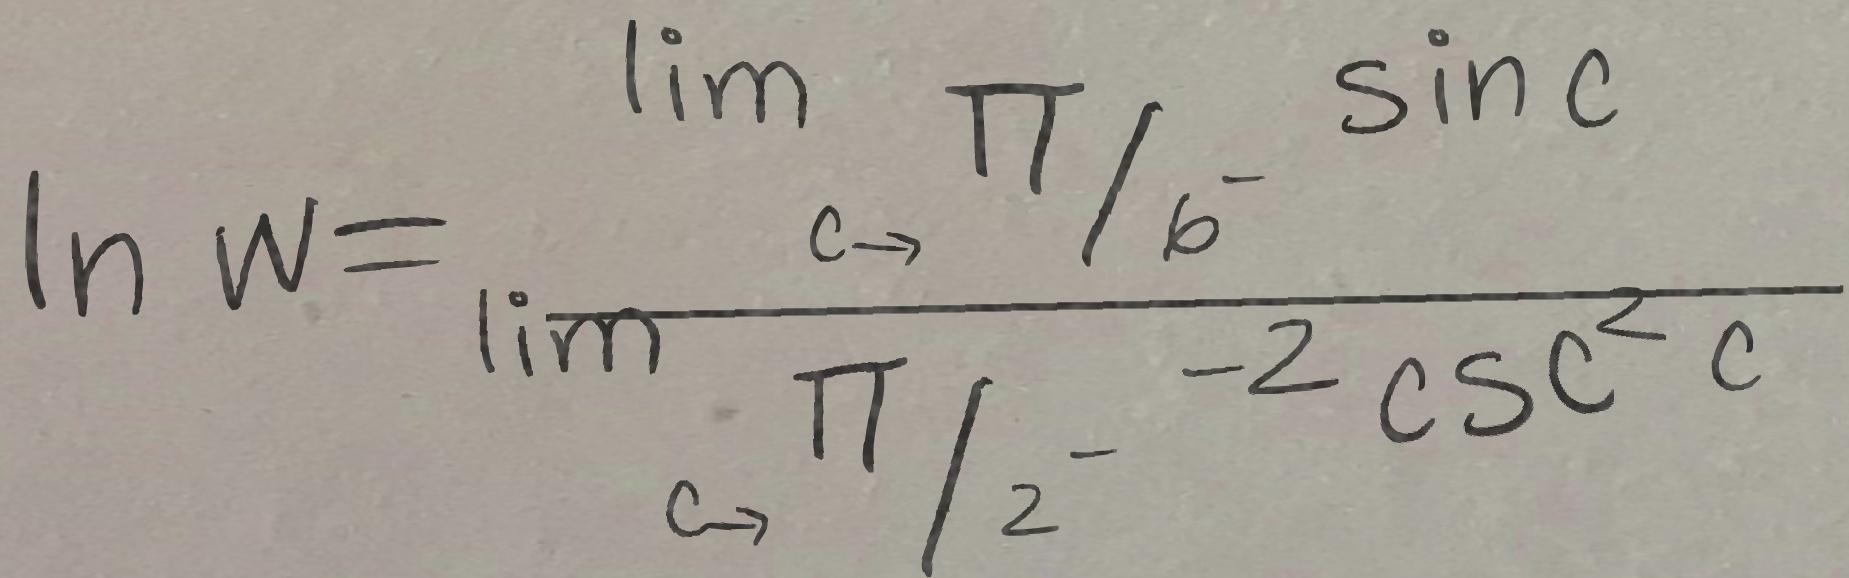 ln w = \frac{\lim_{c \to \pi/6^-} \sin c}{\lim_{c \to \pi/2^-} -2 \csc^2 c}